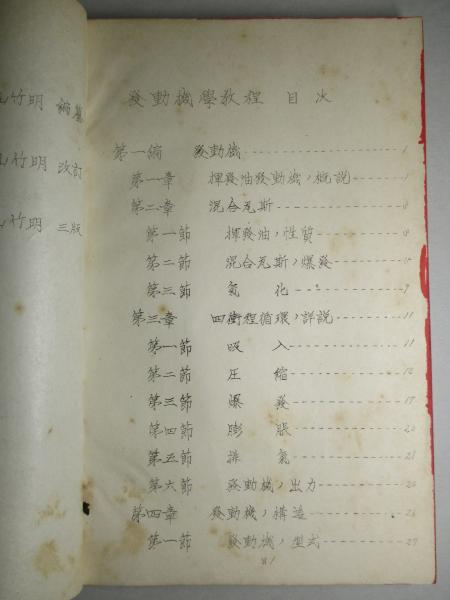 竹明 編纂
竹明 改訂
竹明 三版
發動機學教程 目次
第一編 發動機 1
第一章 揮發油發動機ノ概説 1
第二章 混合瓦斯
第一節 揮發油ノ性質
第二節 混合瓦斯ノ爆發
第三節 氣化 9
第三章 四衝程循環ノ詳説 11
第一節 吸入 11
第二節 圧縮
第三節 爆發 17
第四節 膨脹 20
第五節 排氣 21
第六節 發動機ノ出力
第四章 發動機ノ構造
第一節 發動機ノ型式 27